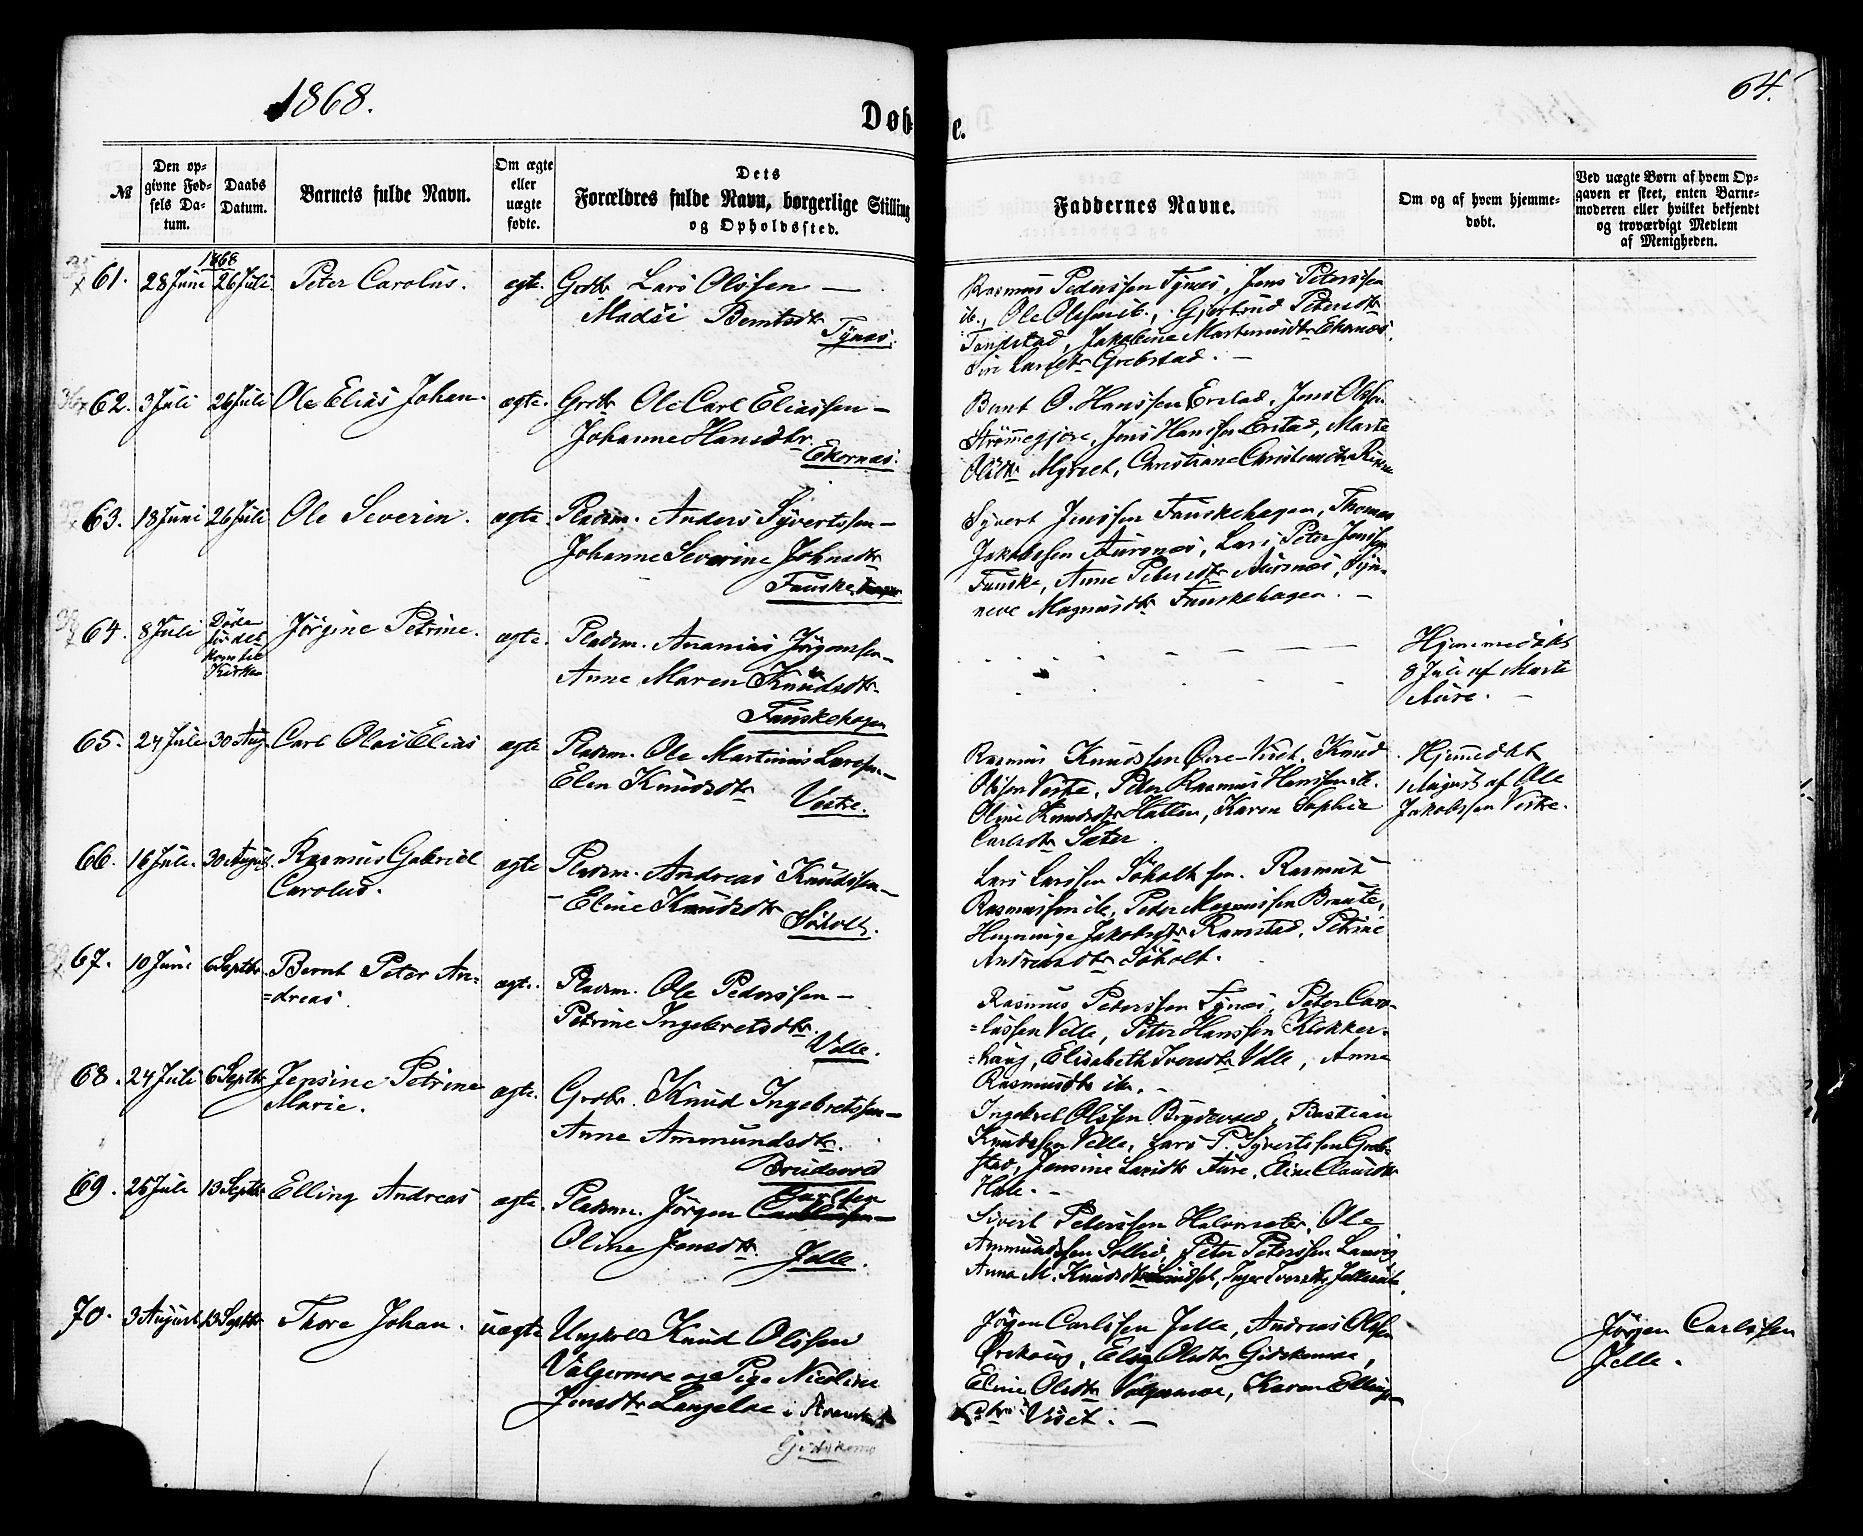 1868.
64.
Døbte.
№
Den opgivne Fødsels Datum.
Daabs Datum.
Barnets fulde Navn.
Om ægte eller uægte fødte.
Dets Forældres fulde Navn, borgerlige Stilling og Opholdssted.
Faddernes Navne.
Om og af hvem hjemmedøbt.
Ved uægte Børn af hvem Opgaven er skeet, enten Barnemoderen eller hvilket bekjendt og troværdigt Medlem af Menigheden.
1868
61. 28 Juni 26 Juli Peter Carolus. ægte. Grdbr Lars Olssen —
Madsi Berntsdtr
Tynæs.
Rasmus Pederssen Tynæs, Jens Peterssen
ib., Ole Olssen ib., Gjertrud Petersdtr
Tandstad, Jakobine Martinusdtr Ekornæs,
Siri Larsdtr Grebstad. —
62. 3 Juli 26 Juli Ole Elias Johan. ægte. Grdbr Ole Carl Eliassen —
Johanne Hansdtr.
Ekornæs.
Bernt O. Hanssen Erstad, Jens Olssen
Strømmegjære, Jens Hanssen Erstad, Marte
Olsdtr Myrset, Christiane Christensdtr
63. 18 Juni 26 Juli Ole Severin. ægte. Pladsm. Anders Syvertssen —
Johanne Severine Johnsdtr
Fauskehagen
Syvert Jenssen Fauskehagen, Thomas
Jakobssen Aursnæs, Lars Peter Jenssen
Fauske, Anne Petersdtr Aursnæs, Syn-
neve Magnusdtr Fauskehagen. —
64. 8 Juli Døde
før det
kom til
Kirken
Jørgine Petrine. ægte. Pladsm. Ananias Jørgenssen —
Anne Maren Knudsdtr.
Fauskehagen
Hjemmedøbt
8 Juli af Marte
Aure. —
65. 24 Juli 30 Aug. Carl Olai Elias ægte Pladsm. Ole Martinus Larssen —
Elen Knudsdtr
Vestre.
Rasmus Knudssen Øvre-Viset, Knud
Olssen Vestre, Peter Rasmus Hanssen ib.
Oline Knudsdtr Hatlen, Karen Sophie
Carlsdtr Sæter
Hjemmedøbt
1 August af Ole
Jakobssen Vestre.
66. 16 Juli. 30 August. Rasmus Gabriel
Carolus.
ægte Pladsm. Andreas Knudssen —
Eline Knudsdtr
Søholt.
Lars Larssen Søholt sen. Rasmus
Rasmussen ib., Peter Magnussen Brauté,
Jakobsdtr Ramstad, Petrine
Andreasdtr Søholt.
67. 10 Juni 6 Septbr Bernt Peter An=
=dreas.
ægte. Pladsm. Ole Pederssen —
Petrine Ingebretsdtr.
Velle.
Rasmus Peterssen Tynæs, Peter Caro-
=lussen Velle, Peter Hanssen Klokker-
=haug, Elisabeth Iversdtr Velle, Anna
Rasmusdtr ib. —
68. 24 Juli 6 Septbr Jensine Petrine
Marie.
ægte. Grdbr. Knud Ingebretssen —
Anne Ammundsdtr.
Brudevold
Ingebret Olssen Brudevold, Bastian
Knudssen Velle, Lars P. Syvertssen Greb-
stad, Jensine Larsdtr Aure, Eline Clausdtr
Hole. —
69. 25 Juli 13 Septbr Elling Andreas ægte. Pladsm. Jørgen Carlssen —
Oline Jensdtr. Jelle.
Sivert Peterssen Halvorsæter, Ole
Ammundssen Sollid, Peter Peterssen
Anna M. Knudsdtr Lindset, Inger Iversdtr
70. 3 August 13 Septbr Thore Johan. uægte Ungkarl Knud Olssen
Valgermoe og Pige Nicoline
Jonsdtr Langeloe i
Gidskemo
Jørgen Carlssen Jelle, Andreas Olssen
Ørehaug, Olsdtr Gidskemoe,
Eline Olsdtr Valgermoe, Karen Ellings-
dtr Viset. —
Jørgen Carlssen
Jelle.